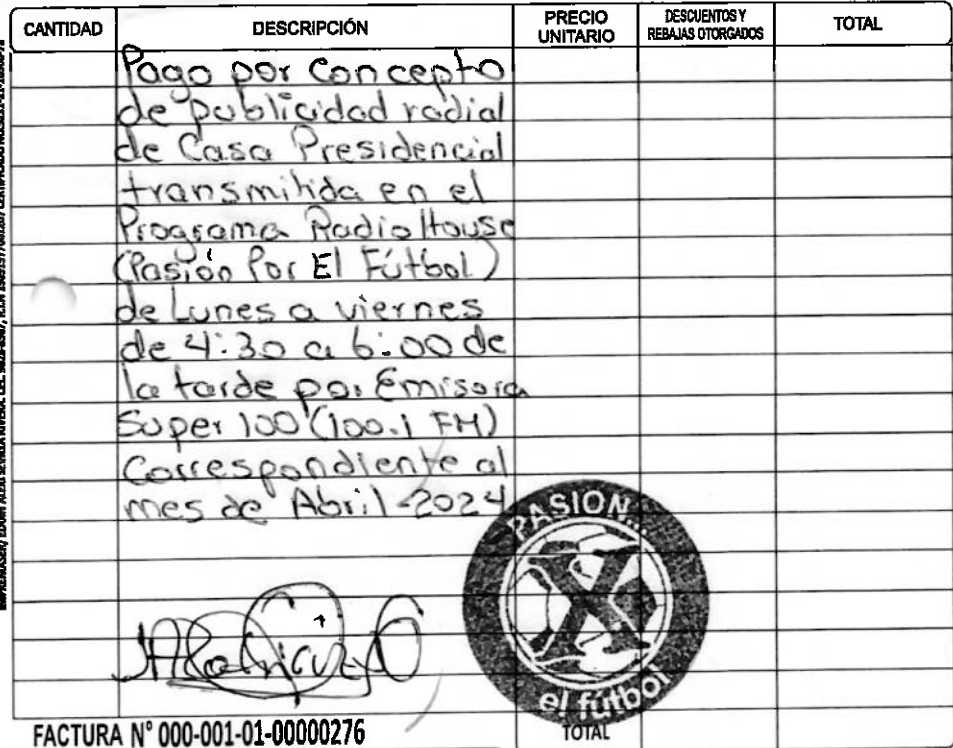 CANTIDAD DESCRIPCIÓN PRECIO UNITARIO DESCUENTOS Y REBAJAS OTORGADOS TOTAL
Pago por Concepto
de publicidad radial
de Casa Presidencial
transmitida en el
Programa RadioHouse
(Pasión Por El Fútbol)
de Lunes a viernes
de 4:30 a 6:00 de
la tarde por Emisora
Super 100 (100.1 FM)
Correspondiente al
mes de Abril-2024
PASION...
X
el fútbol
FACTURA N° 000-001-01-00000276
TOTAL